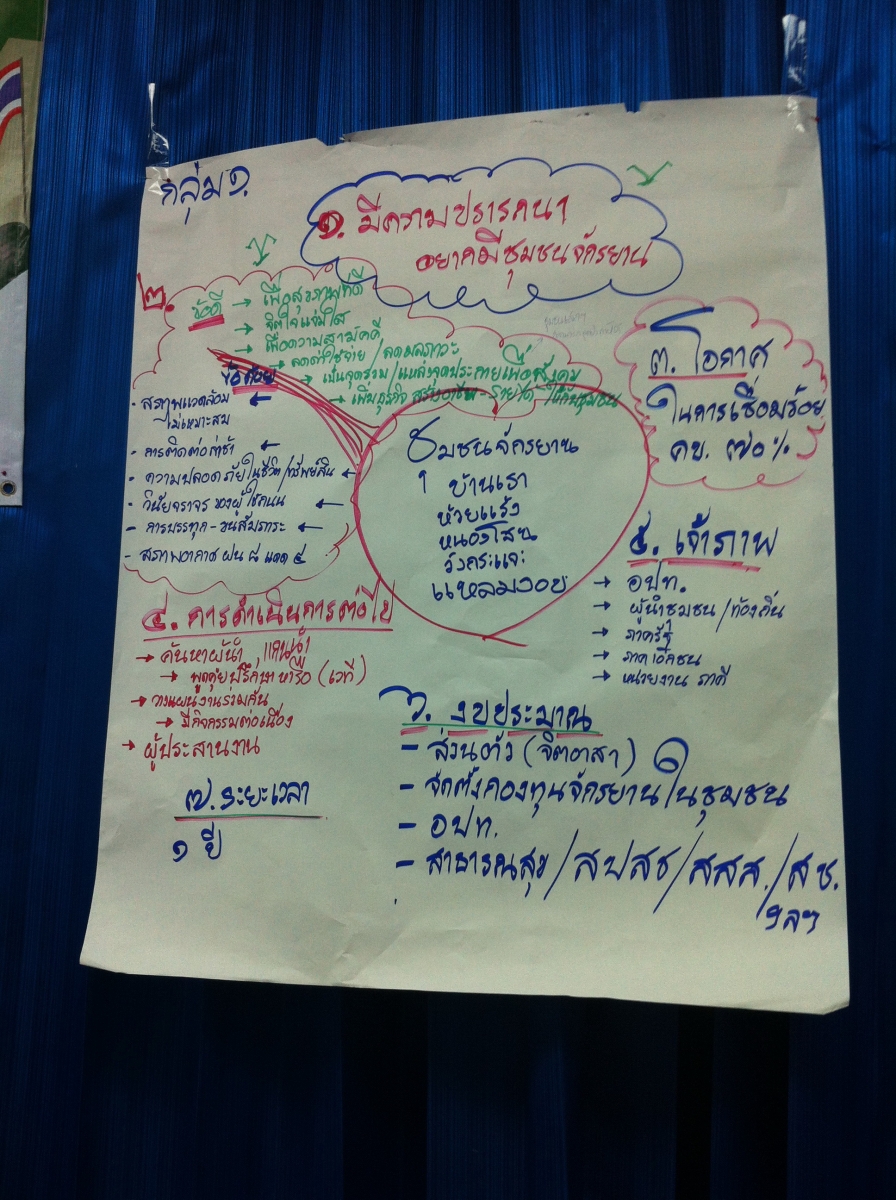 กลุ่ม ๑.
๑. มีความปรารถนา
อยากมีชุมชนจักรยาน
๒.
ข้อดี → เพื่อสุขภาพที่ดี
→ จิตใจแจ่มใส
→ เพื่อความสามัคคี
→ ลดค่าใช้จ่าย / ลดมลภาวะ
→ เป็นจุดรวม / แหล่งจุดประกายเพื่อสังคม
→ เพิ่มธุรกิจ สร้างอาชีพ - รายได้ ให้กับชุมชน
ข้อด้อย
- สภาพแวดล้อม ←
ไม่เหมาะสม
- การติดต่อล่าช้า ←
- ความปลอดภัยในชีวิต/ทรัพย์สิน ←
- วินัยจราจร ของผู้ใช้ถนน ←
- การบรรทุก - ขนสัมภาระ ←
- สภาพอากาศ ฝน ๘ แดด ๔
ชุมชนจักรยาน
บ้านเรา
ห้วยแร้ง
หนองโสน
วังกระแจะ
แหลมงอบ
๓. โอกาส
ในการเชื่อมร้อย
คข. ๗๐%
๔. การดำเนินการต่อไป
→ ค้นหาผู้นำ, แกนนำ
→ พูดคุยปรึกษาหารือ (เวที)
→ วางแผนงานร่วมกัน
→ มีกิจกรรมต่อเนื่อง
→ ผู้ประสานงาน
๕. เจ้าภาพ
→ อปท.
→ ผู้นำชุมชน / ท้องถิ่น
→ ภาครัฐ
→ ภาคเอกชน
→ หน่วยงาน ภาคี
๖. งบประมาณ
- ส่วนตัว (จิตอาสา)
- จัดตั้งกองทุนจักรยานในชุมชน
- อปท.
- สาธารณสุข / สปสช / สสส. / สช.
ฯลฯ
๗. ระยะเวลา
๑ ปี